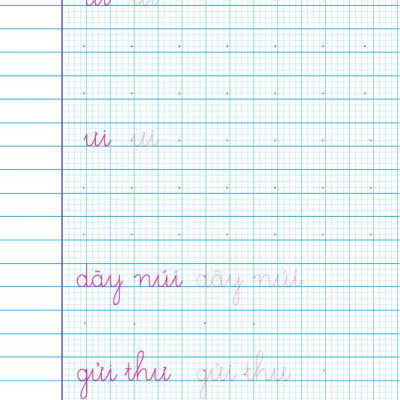 ưi ưi
dãy núi dãy núi
gửi thư gửi thư